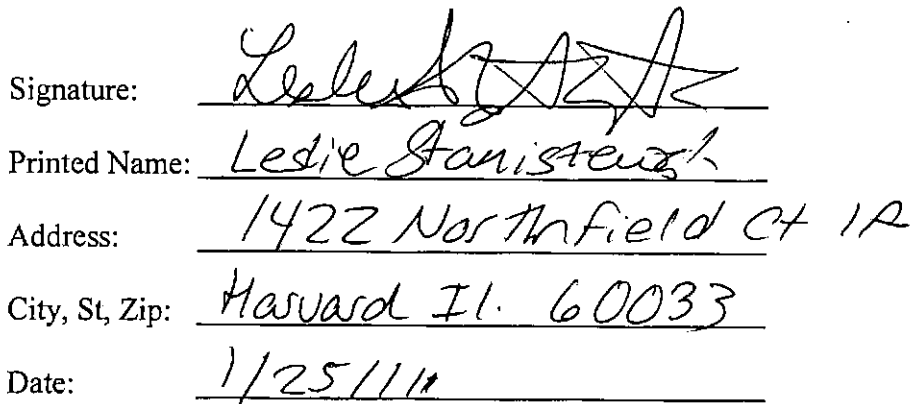 Signature:
Printed Name: Leslie
Address: 1422 Northfield Ct 1A
City, St, Zip: Harvard Il. 60033
Date: 1/25/11